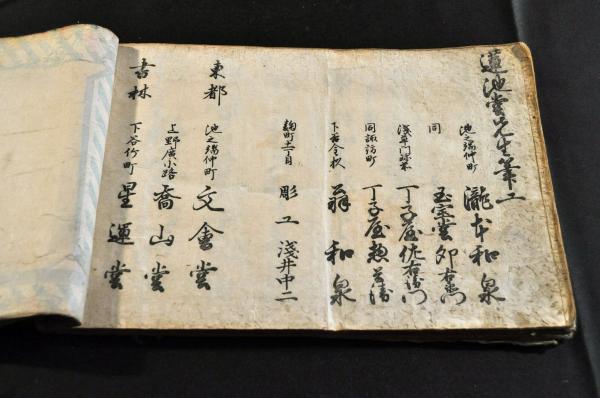 蓮池堂先生筆工
池之端仲町 瀧本和泉
同 玉宝堂卯右衛門
浅草門跡前 丁子屋佐右衛門
同諏訪町 丁子屋惣兵衛
下谷金杉 翁和泉
麹町十二丁目 彫工 淺井中二
東都
池之端仲町 文會堂
上野廣小路 喬山堂
書林
下谷竹町 星運堂